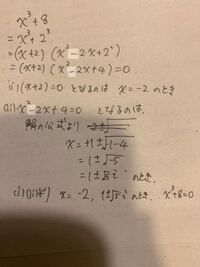 x³+8
= x³+2³
=(x+2) (x²-2x+2²)
=(x+2) (x²-2x+4)=0
(i)(x+2)=0 となるのは x=-2 のとき
(ii)x²-2x+4=0 となるのは、
解の公式より
x=+1±√1-4
=1±√-5
=1±√5i のとき、
(i)(ii)より x=-2, 1±√5i のとき、x³+8=0